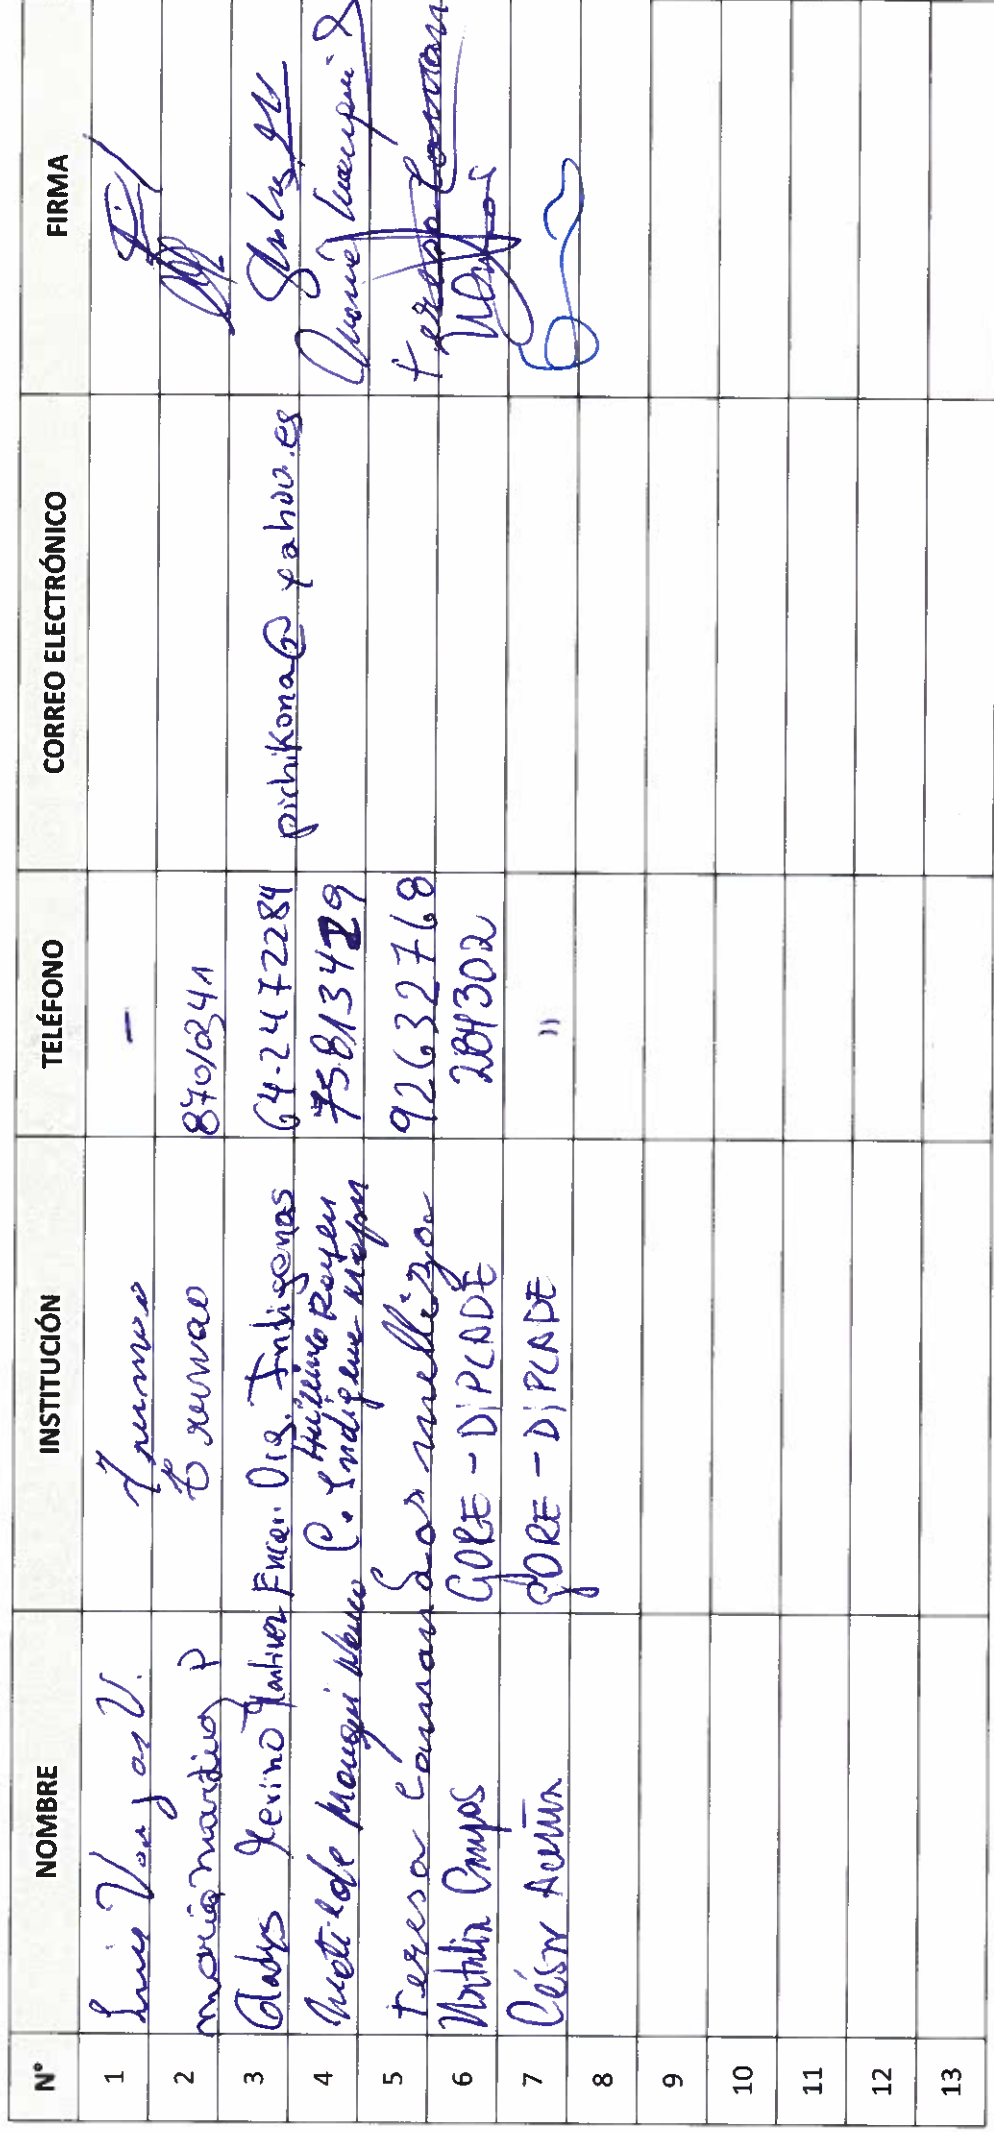 N° NOMBRE INSTITUCIÓN TELÉFONO CORREO ELECTRÓNICO FIRMA
1 Luis Vargas V. Trumao -
2 maria martinez P Trumao 87010341
3 Gladys Encar. Of. Indigenas 64-2472284 pichikona@yahoo.es
4 Matilde C. Indigena Huillino Rayen 75813429
5 teresa Comian Las mellizas 92632768 teresa Comian
6 Natalia Campos GORE - DIPLADE 284302
7 César Acuña GORE - DIPLADE "
8
9
10
11
12
13